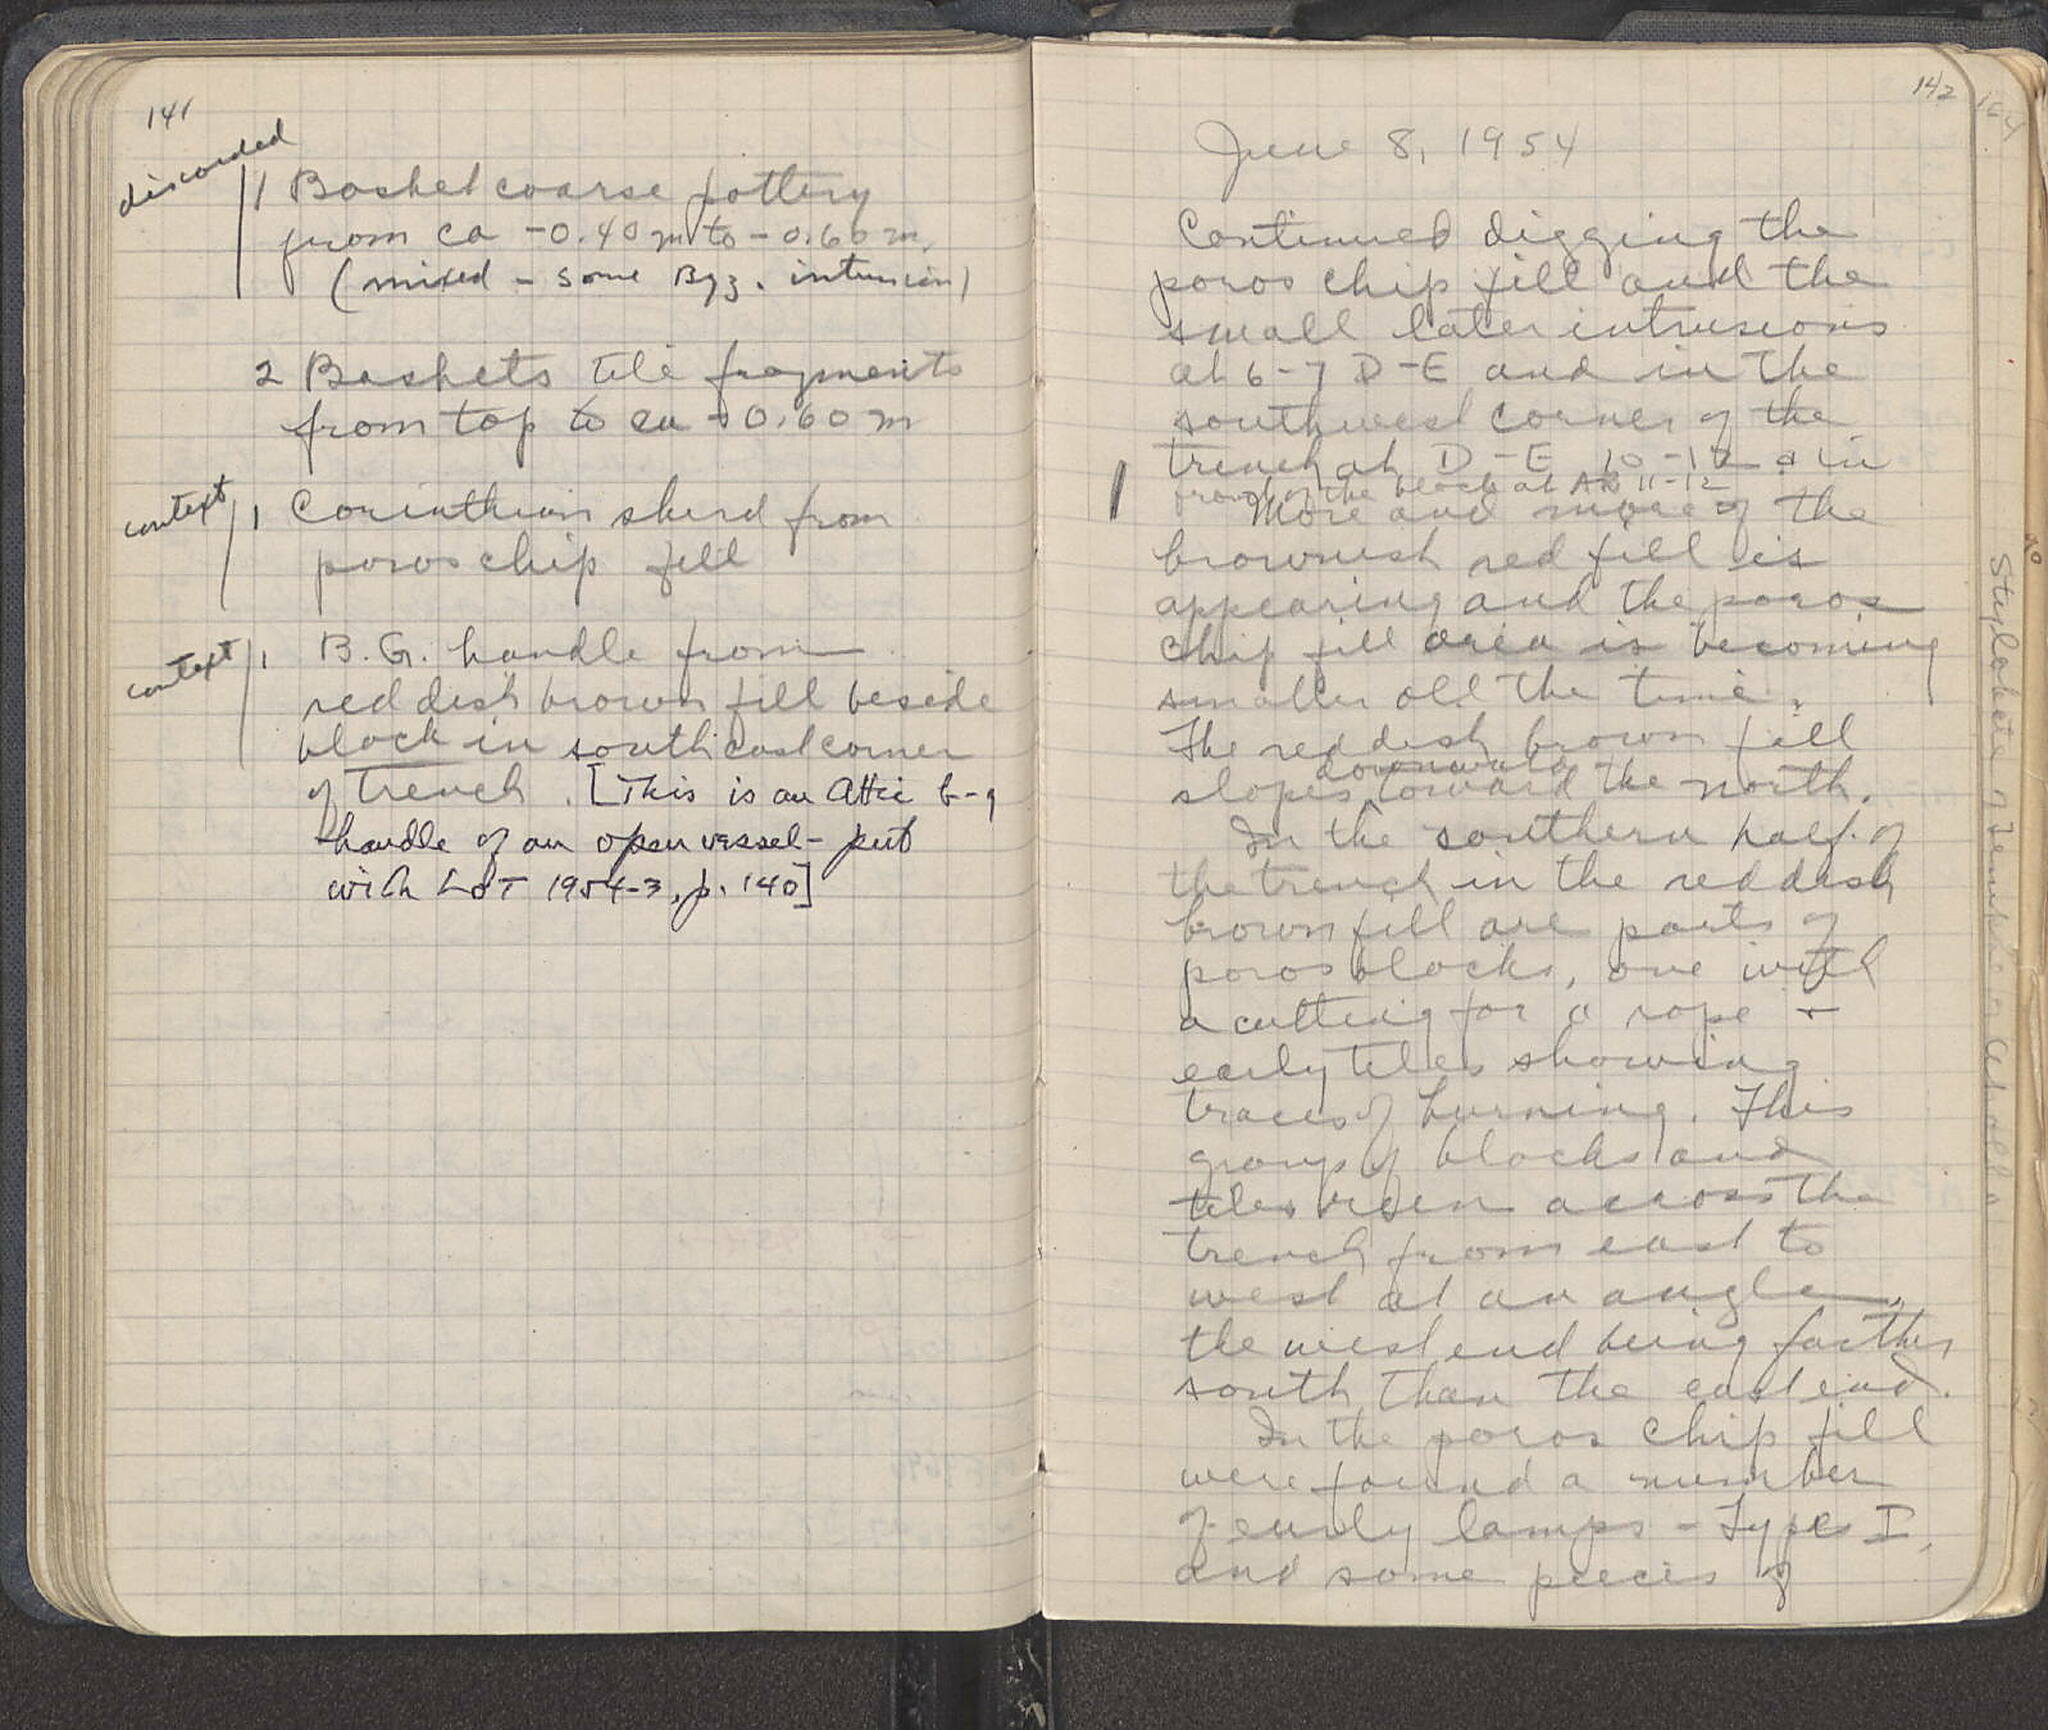 141
discarded
1 Basket coarse pottery
from ca -0.40 m to -0.60 m.
(mixed - some Byz. intrusion)
2 Baskets tile fragments
from top to ca -0.60 m
context
1 Corinthian sherd from
poros chip fill
context
1 B.G. handle from
reddish brown fill beside
block in southeast corner
of trench. [This is an Attic b-g
handle of an open vessel - put
with LOT 1954-3, p. 140]
142
June 8, 1954
Continued digging the
poros chip fill and the
small later intrusions
at 6-7 D-E and in the
southwest corner of the
trench at D-E 10-12 & in
front of the block at AB 11-12
More and more of the
brownish red fill is
appearing and the poros
chip fill area is becoming
smaller all the time.
The reddish brown fill
downward
slopes toward the north.
In the southern half of
the trench in the reddish
brown fill are parts of
poros blocks, one with
a cutting for a rope +
early tiles showing
traces of burning. This
group of blocks and
tiles risen across the
trench from east to
west at an angle,
the west end being farther
south than the east end.
In the poros chip fill
were found a number
of early lamps - Type I,
and some pieces of
164
Stylobate of Temple of Apollo